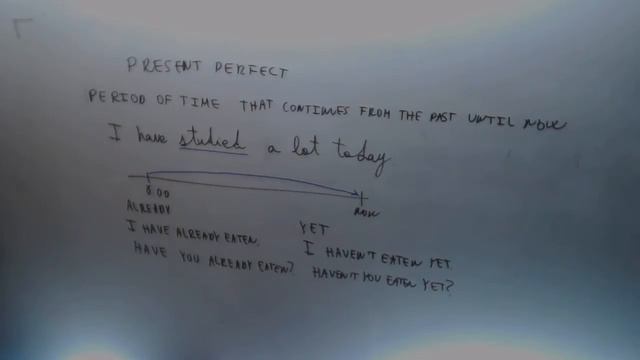 PRESENT PERFECT
PERIOD OF TIME THAT CONTINUES FROM THE PAST UNTIL NOW
I have studied a lot today
8:00 NOW
ALREADY YET
I HAVE ALREADY EATEN. I HAVEN'T EATEN YET.
HAVE YOU ALREADY EATEN? HAVEN'T YOU EATEN YET?